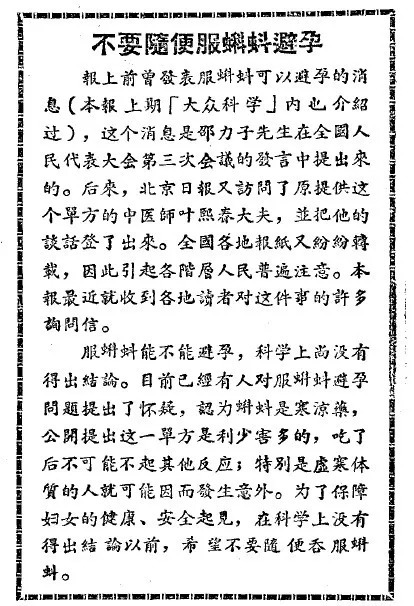 不要隨便服蝌蚪避孕
報上前曾發表服蝌蚪可以避孕的消
息(本報上期「大众科学」內也介紹
过),这个消息是邵力子先生在全國人
民代表大会第三次会議的發言中提出來
的。后來,北京日報又訪問了原提供这
个單方的中医師叶熙春大夫,並把他的
談話登了出來。全國各地報紙又紛紛轉
載,因此引起各階層人民普遍注意。本
報最近就收到各地讀者对这件事的許多
詢問信。
服蝌蚪能不能避孕,科学上尚沒有
得出結論。目前已經有人对服蝌蚪避孕
問題提出了怀疑,認为蝌蚪是寒涼藥,
公開提出这一單方是利少害多的,吃了
后不可能不起其他反应;特別是虛寒体
質的人就可能因而發生意外。为了保障
妇女的健康、安全起見,在科学上沒有
得出結論以前,希望不要隨便吞服蝌
蚪。